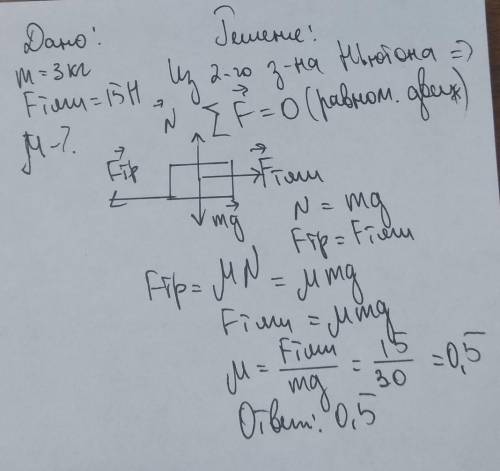 Дано: Решение:
m = 3 кг
Fтяги = 15 Н Из 2-го з-на Ньютона =>
μ - ?. N ΣF = 0 (равном. движ)
Fтр Fтяги
mg N = mg
Fтр = Fтяги
Fтр = μN = μmg
Fтяги = μmg
μ = Fтяги/mg = 15/30 = 0,5
Ответ: 0,5